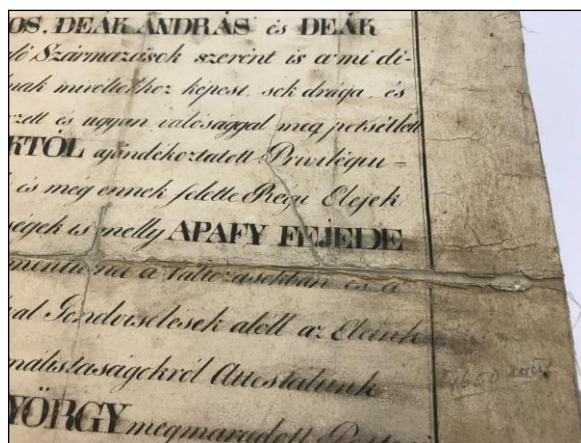 OS, DEÁK ANDRÁS és DEÁK
Származások szerént is a mi di-
nak mivóltokhoz képest sok drága és
ezett és ugyan valósággal meg petsétlett
KTÓL ajándékoztatott Privilégiu-
is még ennek felette Régi Elejek
ségek is melly APAFY FEJEDE
a Változásokban és a
val Gondviselések alólt az Eleink
nálistaságokról Attestálunk
YÖRGY megmaradott
1650